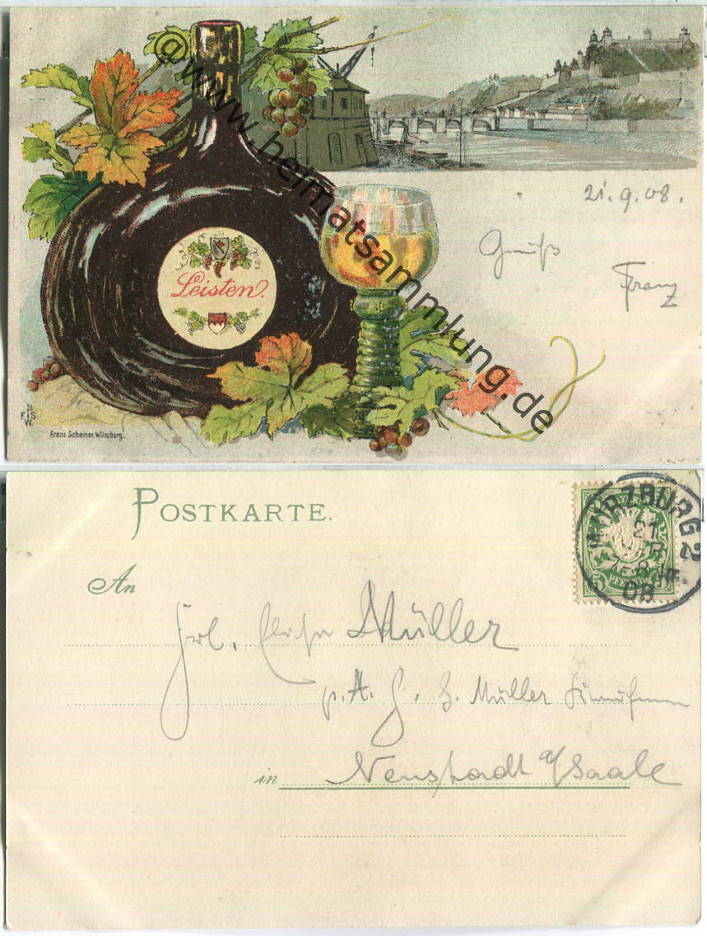 @www.heimatsammlung.de
Leisten.
21.9.08.
Gruß
Franz
F.S.
W.
Franz Scheiner, Würzburg.
POSTKARTE.
An
WÜRZBURG 2
21
7-8
08
Frl. Müller
p. A. Müller
in Neustadt a/Saale